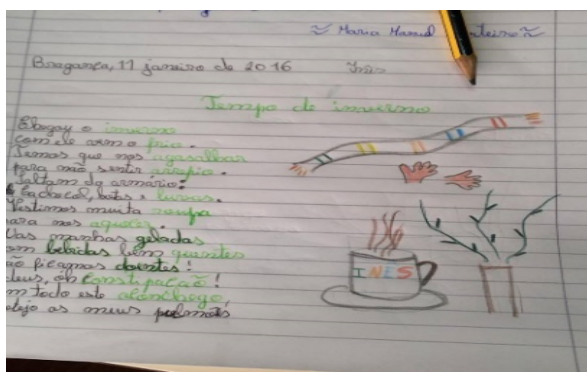 ~ Maria Manuel nteiro ~
Bragança, 11 janeiro de 2016 Inês
Tempo de inverno
Chegou o inverno
com ele armo frio.
Temos que nos agasalhar
para não sentir arrepio.
altam do armário:
cachecol, botas e luvas.
Vestimos muita roupa
ara nos aquecer.
Nas manhas geladas
om bebidas bem quentes
ão ficamos doentes!
deus, oh constipação!
m todo este aconchego,
tejo os meus pulmões
INÊS